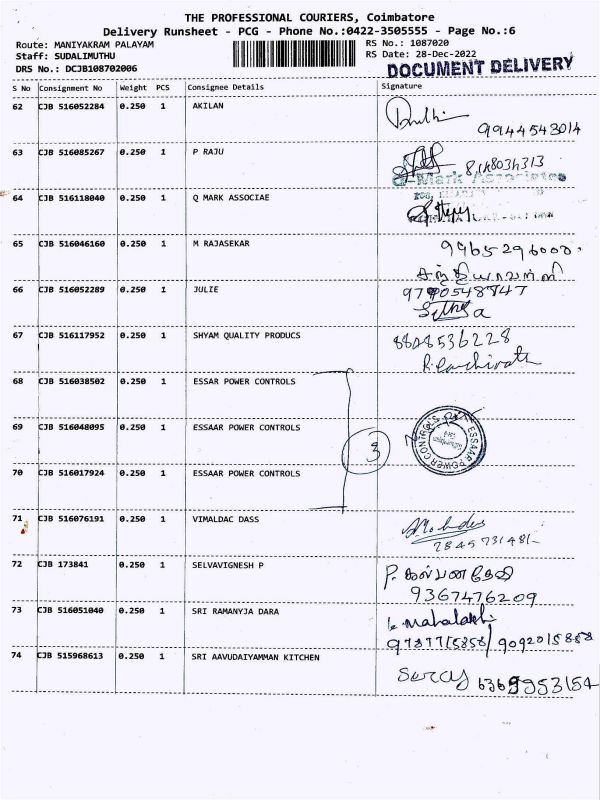 THE PROFESSIONAL COURIERS, Coimbatore
Delivery Runsheet - PCG - Phone No.:0422-3505555 - Page No.:6
Route: MANIYAKRAM PALAYAM RS No.: 1087020
Staff: SUDALIMUTHU RS Date: 28-Dec-2022
DRS No.: DCJB108702006 DOCUMENT DELIVERY
S No Consignment No Weight PCS Consignee Details Signature
62 CJB 516052284 0.250 1 AKILAN
9944543014
63 CJB 516085267 0.250 1 P RAJU
Q-Mark Associates
64 CJB 516118040 0.250 1 Q MARK ASSOCIAE
65 CJB 516046160 0.250 1 M RAJASEKAR 9965296000
66 CJB 516052289 0.250 1 JULIE
67 CJB 516117952 0.250 1 SHYAM QUALITY PRODUCS 8848536228
68 CJB 516038502 0.250 1 ESSAR POWER CONTROLS
69 CJB 516048095 0.250 1 ESSAAR POWER CONTROLS 3 ESSAAR POWER CONTROLS
70 CJB 516017924 0.250 1 ESSAAR POWER CONTROLS
71 CJB 516076191 0.250 1 VIMALDAC DASS
7845731481-
72 CJB 173841 0.250 1 SELVAVIGNESH P
9367476209
73 CJB 516051040 0.250 1 SRI RAMANYJA DARA
9092015858
74 CJB 515968613 0.250 1 SRI AAVUDAIYAMMAN KITCHEN
6369953154